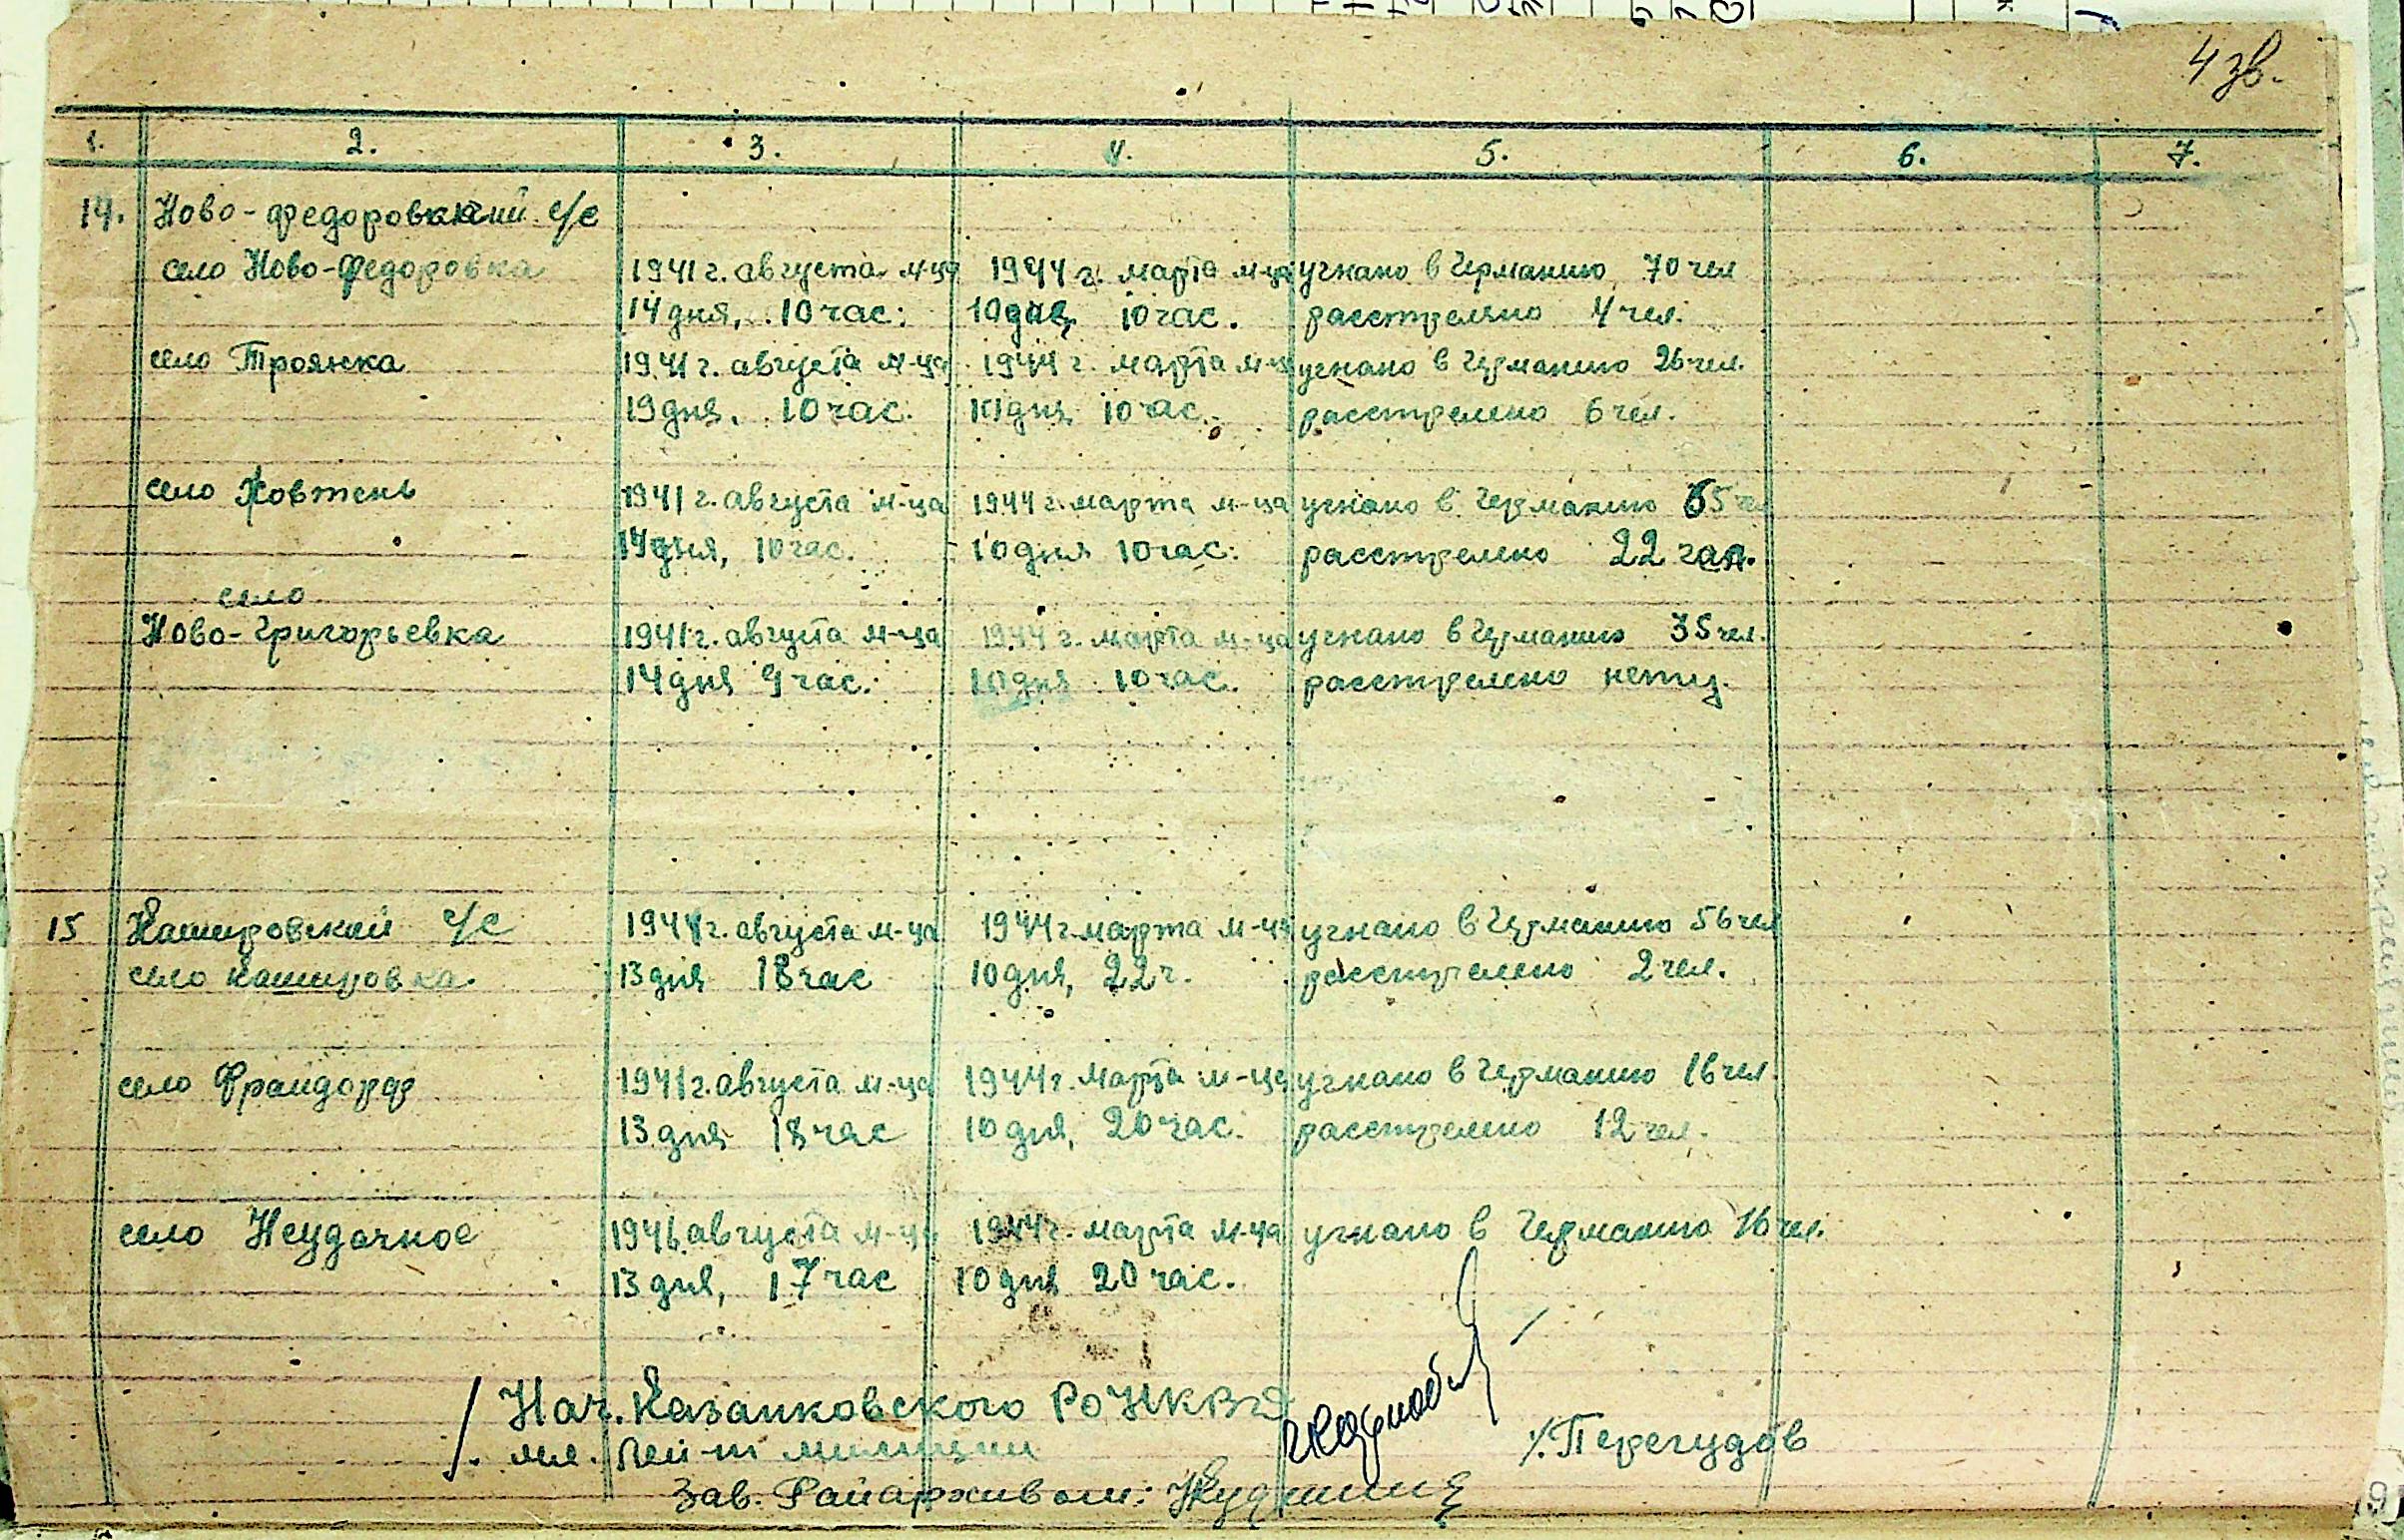 4 зв.
1. 2. 3. 4. 5. 6. 7.
14. Ново-федоровский с/с
село Ново-Федоровка 1941 г. августа м-ца 1944 г. марта м-ца угнано в Германию 70 чел
14 дня, 10 час. 10 дня 10 час. расстреляно 4 чел.
село Троянка 1941 г. августа м-ца 1944 г. марта м-ца угнано в Германию 26 чел.
19 дня. 10 час. 10 дня 10 час. расстрелено 6 чел.
село Жовтень 1941 г. августа м-ца 1944 г. марта м-ца угнано в Германию 65 чел
14 дня, 10 час. 10 дня 10 час. расстрелено 22 чел.
село
Ново-Григорьевка 1941 г. августа м-ца 1944 г. марта м-ца угнано в Германию 35 чел.
14 дня 9 час. 10 дня 10 час. расстрелено нету.
15 Кашировский с/с 1941 г. августа м-ца 1944 г. марта м-ца угнано в Германию 56 чел
село Кашировка. 13 дня 18 час 10 дня, 22 ч. расстрелено 2 чел.
село Фрайдорф 1941 г. августа м-ца 1944 г. марта м-ца угнано в Германию 16 чел.
13 дня 18 час 10 дня, 20 час. расстрелено 12 чел.
село Неудачное 1941г. августа м-ца 1944 г. марта м-ца угнано в Германию 16 чел.
13 дня, 17 час 10 дня 20 час.
/ Нач. Казанковского РО НКВД
/. мл. лей-т милиции /. Перегудов
Зав. Райархивом: